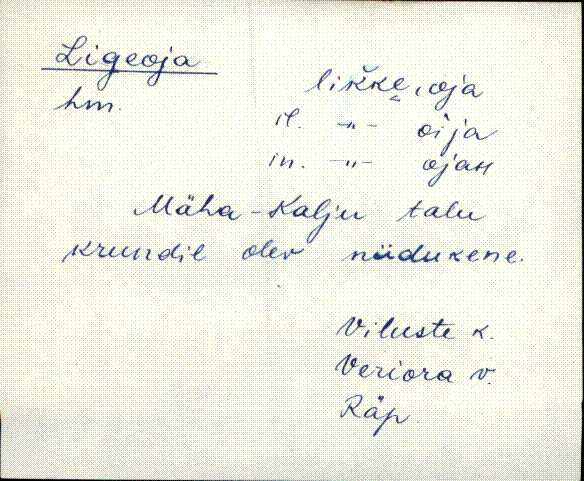 Ligeoja
hm.
likĸĸe̮ ˌoja
il. -"- oi̭ja
in. -"- ojaн
Mäha-Kalju talu
krundil olev niidukene.
Viluste k.
Veriora v.
Räp.